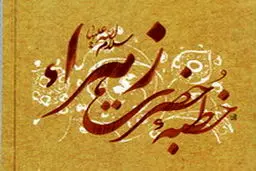 خطبهٔ حضرت زهراء
سلام الله علیها